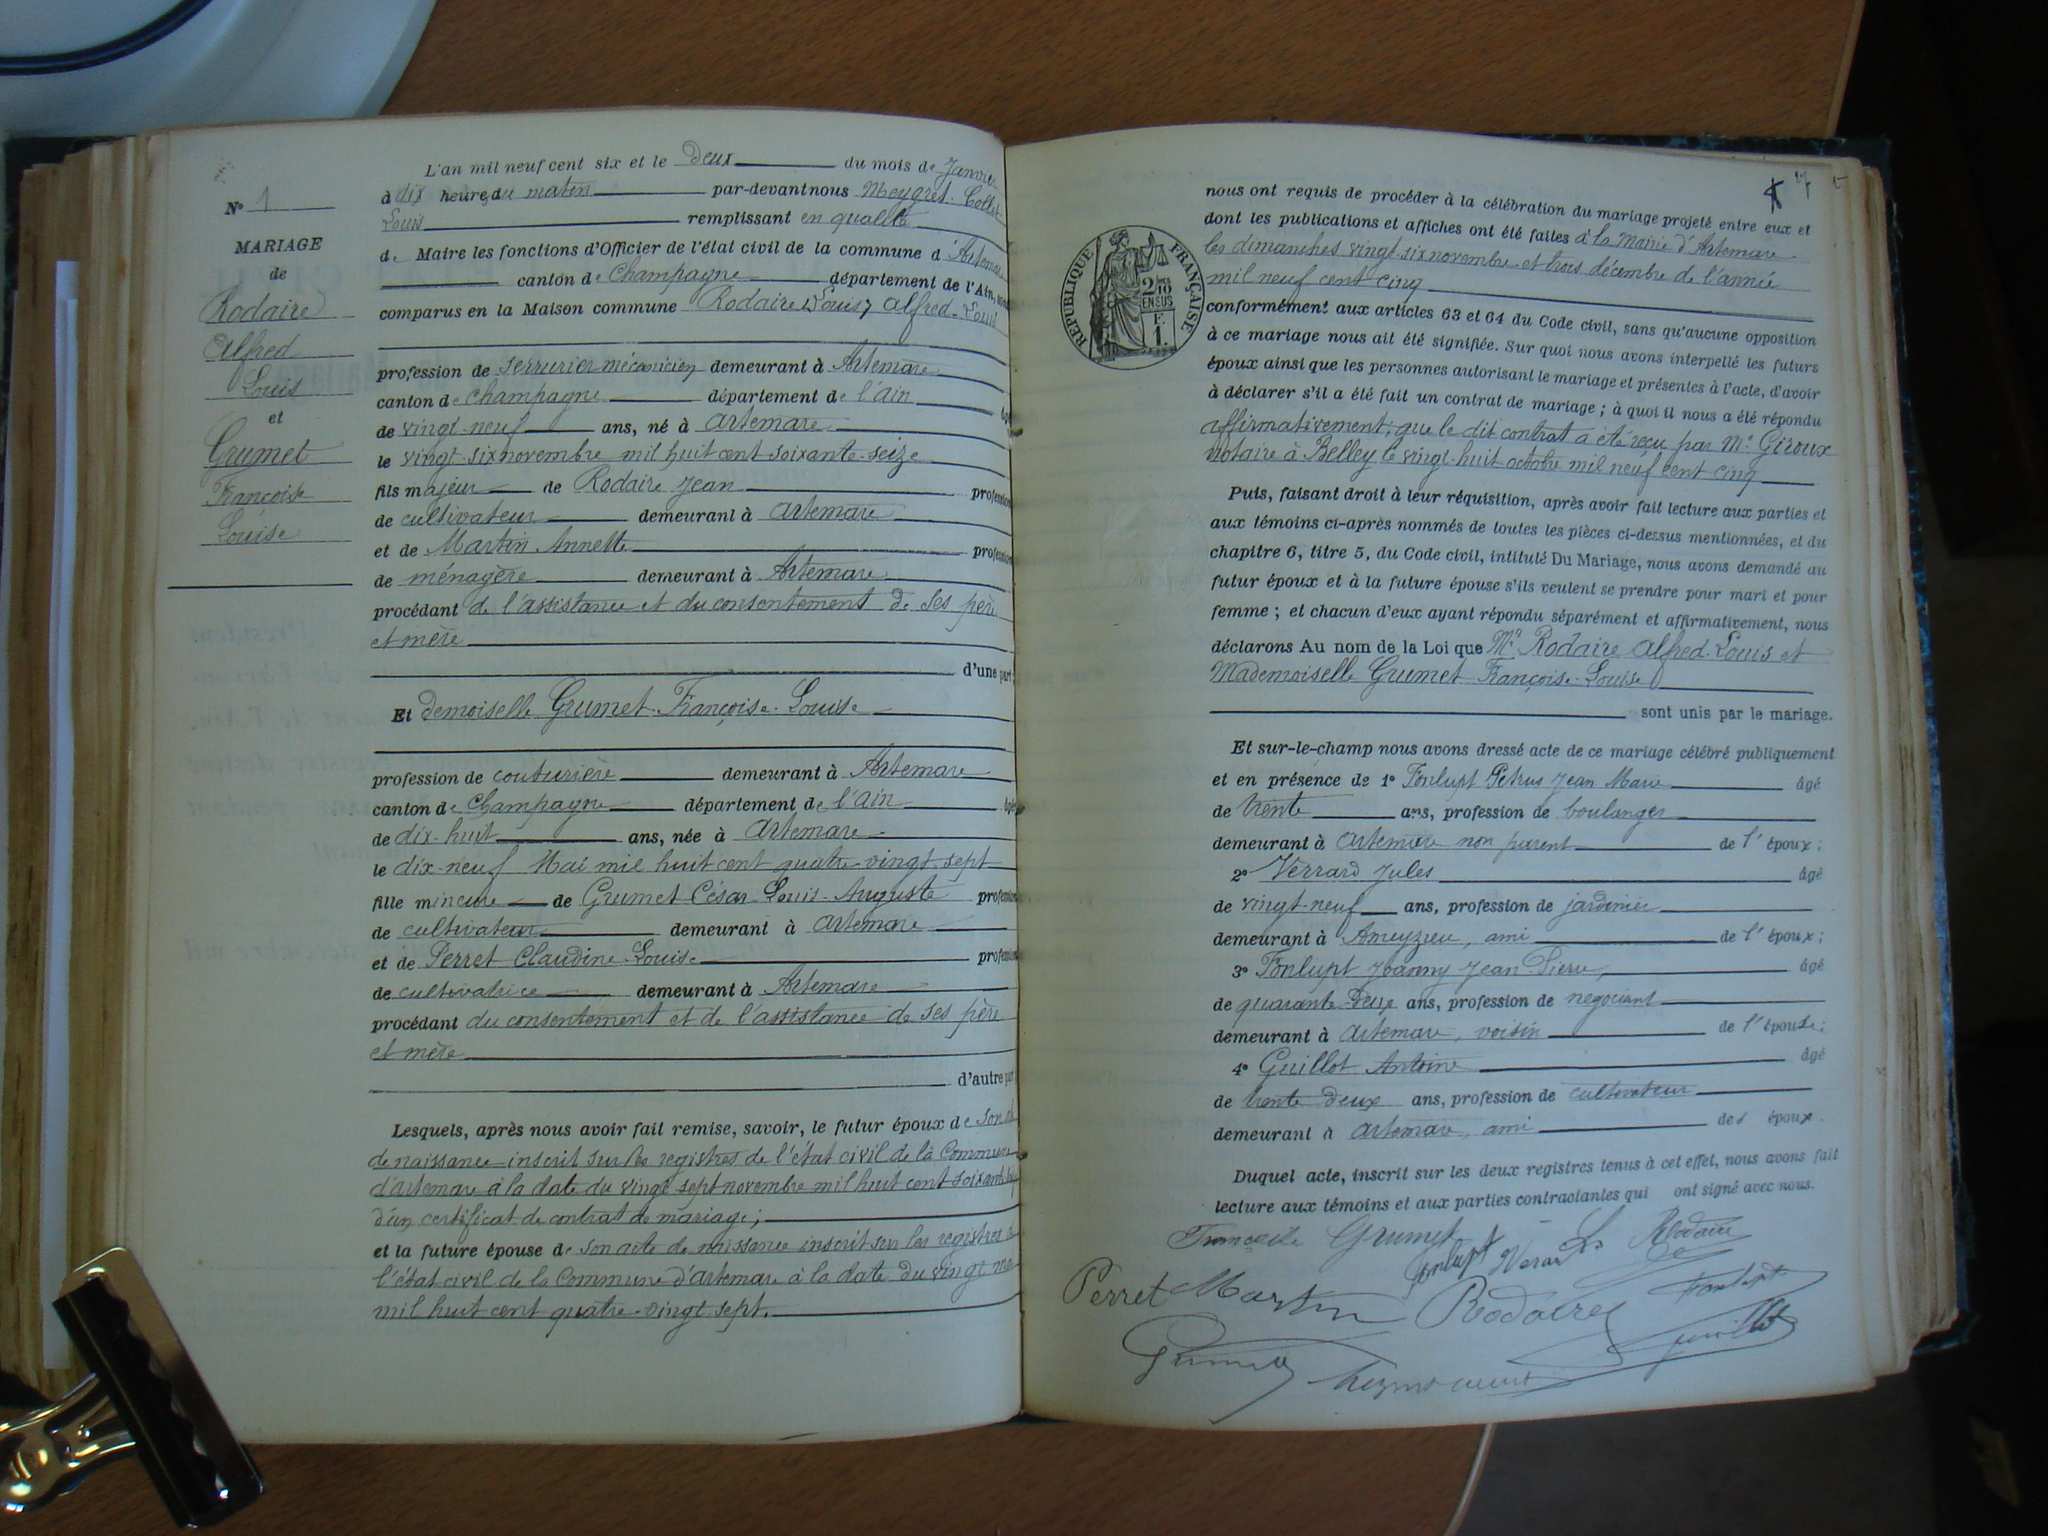 N° 1
MARIAGE
de
Rodaire
Alfred
Louis
et
Grumet
Françoise
Louise
L'an mil neuf cent six et le deux du mois de Janvier
à dix heures du matin par-devant nous Meygret-Collet
Louis remplissant en qualité
de Maire les fonctions d'Officier de l'état civil de la commune d'Artemare
canton de Champagne département de l'Ain, sont
comparus en la Maison commune Rodaire Louis, Alfred-Louis
profession de serrurier mécanicien demeurant à Artemare
canton de Champagne département de l'ain âgé
de vingt-neuf ans, né à artemare
le vingt-six novembre mil huit cent soixante-seize
fils majeur de Rodaire Jean profession
de cultivateur demeurant à artemare
et de Martin Annette profession
de ménagère demeurant à Artemare
procédant de l'assistance et du consentement de ses père
et mère
d'une part;
Et demoiselle Grumet-Françoise-Louise
profession de couturière demeurant à Artemare
canton de Champagne département de l'ain âgée
de dix-huit ans, née à artemare
le dix-neuf Mai mil huit cent quatre-vingt-sept
fille mineure de Grumet-César-Louis-Auguste profession
de cultivateur demeurant à artemare
et de Perret Claudine-Louise profession
de cultivatrice demeurant à Artemare
procédant du consentement et de l'assistance de ses père
et mère
d'autre part
Lesquels, après nous avoir fait remise, savoir, le futur époux de son acte
de naissance inscrit sur les registres de l'état civil de la Commune
d'artemare à la date du vingt sept novembre mil huit cent soixante
d'un certificat de contrat de mariage;
et la future épouse de son acte de naissance inscrit sur les registres de
l'état civil de la Commune d'artemare à la date du vingt mai
mil huit cent quatre-vingt sept.
7
nous ont requis de procéder à la célébration du mariage projeté entre eux et
dont les publications et affiches ont été faites à la Mairie d'Artemare
les dimanches vingt-six novembre et trois décembre de l'année
mil neuf cent cinq
RÉPUBLIQUE FRANÇAISE
2/10 EN SUS
F.
1.
conformément aux articles 63 et 64 du Code civil, sans qu'aucune opposition
à ce mariage nous ait été signifiée. Sur quoi nous avons interpellé les futurs
époux ainsi que les personnes autorisant le mariage et présentes à l'acte, d'avoir
à déclarer s'il a été fait un contrat de mariage; à quoi il nous a été répondu
affirmativement; que le dit contrat a été reçu par Me Giroux
Notaire à Belley le vingt-huit octobre mil neuf cent cinq
Puis, faisant droit à leur réquisition, après avoir fait lecture aux parties et
aux témoins ci-après nommés de toutes les pièces ci-dessus mentionnées, et du
chapitre 6, titre 5, du Code civil, intitulé Du Mariage, nous avons demandé au
futur époux et à la future épouse s'ils veulent se prendre pour mari et pour
femme; et chacun d'eux ayant répondu séparément et affirmativement, nous
déclarons Au nom de la Loi que Mr Rodaire Alfred-Louis et
Mademoiselle Grumet-Françoise-Louise
sont unis par le mariage.
Et sur-le-champ nous avons dressé acte de ce mariage célébré publiquement
et en présence de 1° Fonlupt Pétrus Jean Marie âgé
de trente ans, profession de boulanger
demeurant à artemare non parent de l'époux;
2° Verrard Jules âgé
de vingt-neuf ans, profession de jardinier
demeurant à Ameyzieu, ami de l'époux;
3° Fonlupt Joanny Jean Pierre, âgé
de quarante-deux ans, profession de negociant
demeurant à artemare, voisin de l'épouse;
4° Guillot Antoine âgé
de trente deux ans, profession de cultivateur
demeurant à artemare, ami des époux.
Duquel acte, inscrit sur les deux registres tenus à cet effet, nous avons fait
lecture aux témoins et aux parties contractantes qui ont signé avec nous.
Françoise Grumet Rodaire
Fonlupt
Perret Martin Rodaire Fonlupt
Grumet Guillot